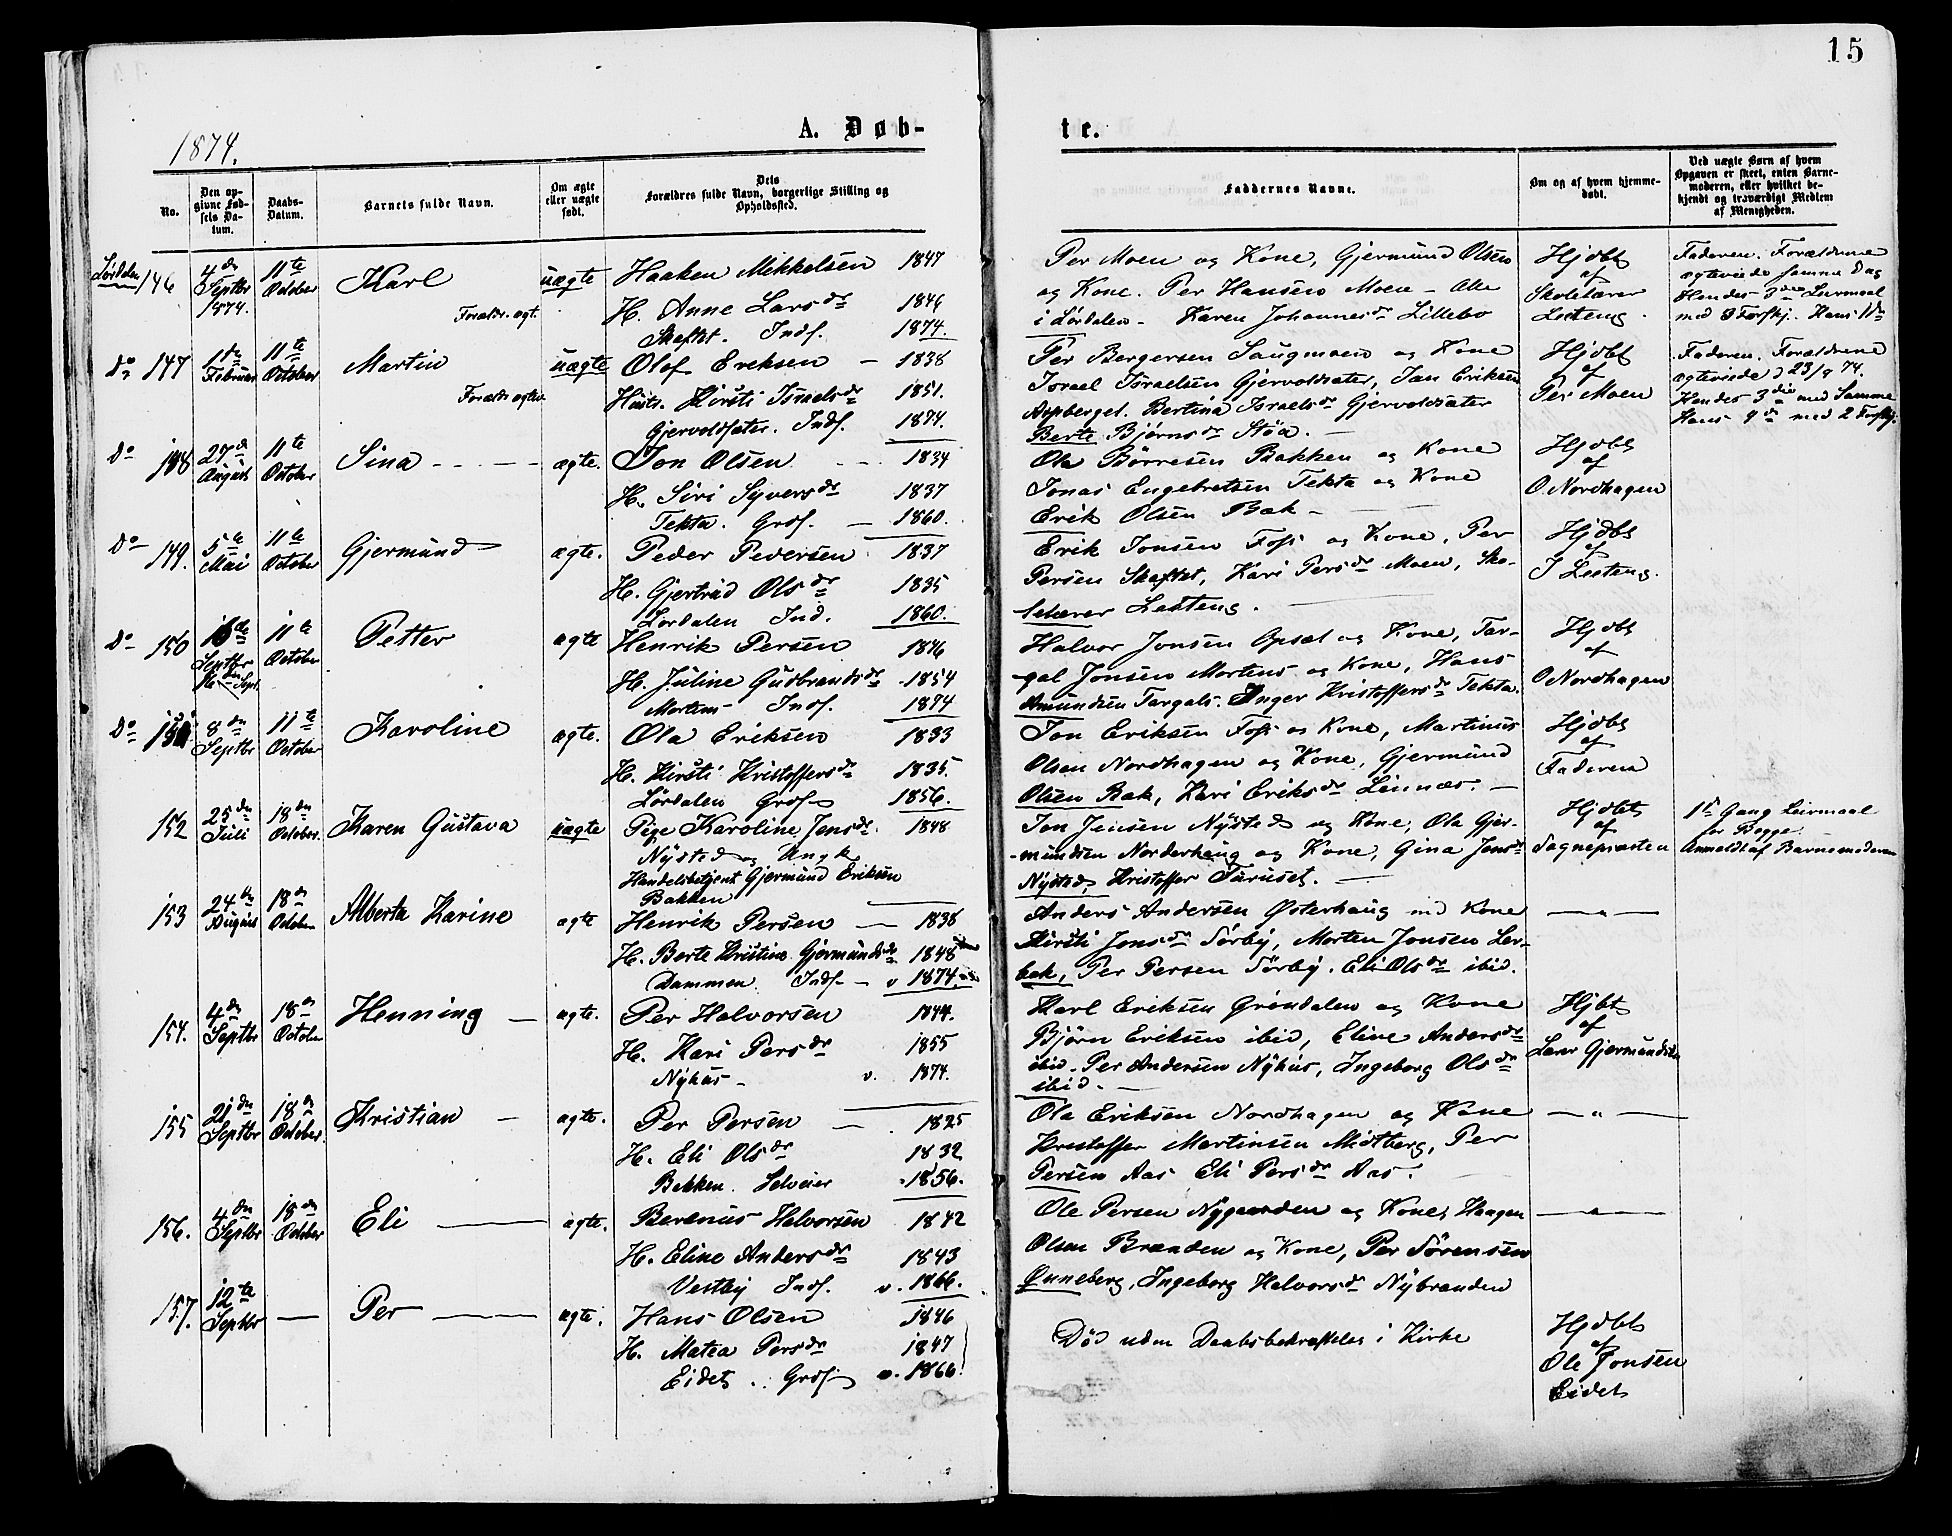 15
1874.
A. Døb-
te.
No.
Den opgivne Fødsels Datum.
Daabs-Datum.
Barnets fulde Navn.
Om ægte eller uægte født.
Dets Forældres fulde Navn, borgerlige Stilling og Opholdssted.
Faddernes Navne.
Om og af hvem hjemmedøbt.
Ved uægte Børn af hvem Opgaven er skeet, enten Barnemoderen, eller hvilket bekjendt og troværdigt Medlem af Menigheden.
Lördalen 146 4de Septbr 1874. 11te October Karl uægte Haaken Mikkelsen 1847
Foreldr. ægt.
H. Anne Larsdr 1846
Skaftet. Inds. 1874.
Per Moen og Kone, Gjermund Olsen
og Kone. Per Hansen Moen - Ole
i Lördalen - Karen Johannesdr Lillebo
Hjdbt
af
Skolelærer
Lesteng.
Faderen. Forældrene
ægteviede samme Dag
Hendes 3die Leiermaal
med 3 Forskj. Hans 11te
Do 147 11te Februar 11te October Martin uægte Olof Eriksen - 1838
Forældr. ægtev.
Hustr. Kirsti Israelsdr 1851.
Gjervoldsæter. Inds. 1874.
Per Bergersen Saugmoen og Kone
Israel Israelsen Gjervoldsæter, Jan Eriksen
Aspberget. Bertina Israelsdr Gjervoldsæter
Berte Bjørnsdr Støa.
Hjdbt
af
Per Moen
Faderen. Forældrene
ægteviede 23/9 74.
Hendes 3die med Samme
Hans 4de med 2 Forskj.
Do 148 27de August 11te October Sina ægte. Jon Olsen 1834
H. Siri Syversdr 1837
Tekta. Grds. - 1860.
Ola Börresen Bakken og Kone
Jonas Engebretsen Tekta og Kone
Erik Olsen Bæk -
Hjdbt
af
O. Nordhagen
Do 149. 5te Mai 11te October Gjermund ægte. Peder Pedersen 1837
H. Gjertrud Olsdr 1835
Lördalen Ind. 1860.
Erik Jonsen Foss og Kone, Per
Persen Skaftet, Kari Persdr Moen, Sko-
lelærer Lesteng.
Hjdbt
af
J Lesteng.
Do 150 16de Septbr 11te October Petter ægte Henrik Persen 1846
H. Juline Gudbrandsdr 1854
Mortens Inds. 1874
Halvor Jonsen Opsæt og Kone, Tar-
gal Jonsen Mortens og Kone, Hans
Amundsen Targals. Inger Kristoffersdr Tekta.
Hjdbt
af
O Nordhagen
Do 151 8de Septbr 11te October Karoline ægte. Ola Eriksen 1833
H. Kirsti Kristoffersdr 1835.
Lördalen Grds 1856.
Jon Eriksen Foss og Kone, Martinus
Olsen Nordhagen og Kone, Gjermund
Olsen Bæk, Kari Eriksdr Linnæs. -
Hjdbt
af
Faderen
152 25de Juli 18de October. Karen Gustava uægte Pige Karoline Jensdr. 1848
Nysted og Ungk
Handelsbetjent Gjermund Eriksen
Bakken
Jon Jensen Nysted og Kone, Ola Gjer-
mundsen Norderhaug og Kone, Gina Jensdr
Nysted, Kristoffer Turuset. -
Hjdbt
af
Sognepræsten
1ste Gang Leiermaal
for Begge.
Anmeldt af Barnemoderen
153 24de August 18de October Alberta Karine ægte Henrik Persen - 1838
H. Berte Kristine Gjermundsdr 1848
Dammen Inds - v 1874.
Anders Andersen Østerhaug med Kone
Kirsti Jonsdr Sörby, Morten Jonsen Ler-
bæk, Per Persen Sörby. Eli Olsdr ibid.
- " -
154. 4de Septbr 18de October Henning - ægte. Per Halvorsen 1844.
H. Kari Persdr 1855
Nyhus - v. 1874.
Karl Eriksen Gröndalen og Kone
Bjørn Eriksen ibid, Eline Andersdr
ibid. Per Andersen Nyhus, Ingeborg Olsdr
ibid. -
Hjbt
af
Lærer Gjermundsen
155 21de Septbr 18de October. Kristian - ægte. Per Persen - 1825
H. Eli Olsdr 1832
Bakken. Selveier 1856.
Ola Eriksen Nordhagen og Kone
Kristoffer Martinsen Midtberg, Per
Persen Aas Eli Persdr Aas.
- " -
156. 4de Septbr 18de October Eli - ægte. Berenus Halvorsen 1842
H. Eline Andersdr 1843
Vestby Inds. v. 1866.
Ole Persen Nygaarden og Kone, Haagen
Olsen Brænden og Kone, Per Sörensen
Ønneberg, Ingeborg Halvorsdr Nybrænden
- " -
157. 12te Septbr - Per - ægte. Hans Olsen 1846
H. Matea Persdr 1847
Eidet. Grds v. 1866.
Död uden Daabsbekræftelse i Kirke
Hjdbt
af
Ole Jonsen
Eidet